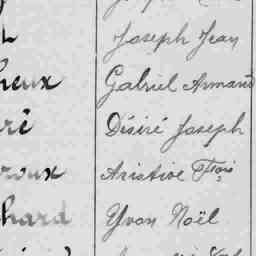 Joseph Jean
heux Gabriel Armand
ré Désiré Joseph
roux Aristide Fçois
hard Yvon Noël